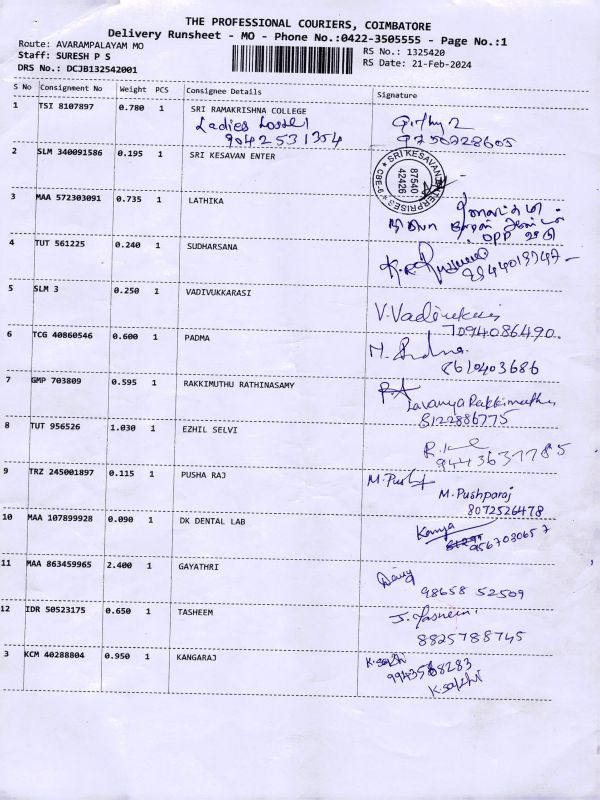 THE PROFESSIONAL COURIERS, COIMBATORE
Delivery Runsheet - MO - Phone No.:0422-3505555 - Page No.:1
Route: AVARAMPALAYAM MO
RS No.: 1325420
Staff: SURESH P S
RS Date: 21-Feb-2024
DRS No.: DCJB132542001
S No Consignment No Weight PCS Consignee Details Signature
1 TSI 8107897 0.780 1 SRI RAMAKRISHNA COLLEGE
Ladies Hostel
9042531354
9750228605
2 SLM 340091586 0.195 1 SRI KESAVAN ENTER
SRI KESAVAN ENTERPRISES CBE-9
87540
42426
3 MAA 572303091 0.735 1 LATHIKA
OPP வீடு
4 TUT 561225 0.240 1 SUDHARSANA
5 SLM 3 0.250 1 VADIVUKKARASI
7094086490
6 TCG 40860546 0.600 1 PADMA
8610403686
7 GMP 703809 0.595 1 RAKKIMUTHU RATHINASAMY
Lavanya Rakkimuthu
8122886775
8 TUT 956526 1.030 1 EZHIL SELVI
9 TRZ 245001897 0.115 1 PUSHA RAJ
M. Pushparaj
8072526478
10 MAA 107899928 0.090 1 DK DENTAL LAB
Kanya
9567030657
11 MAA 863459965 2.400 1 GAYATHRI
98658 52509
12 IDR 50523175 0.650 1 TASHEEM
8825788745
3 KCM 40288804 0.950 1 KANGARAJ
K. sakthi
K sakthi